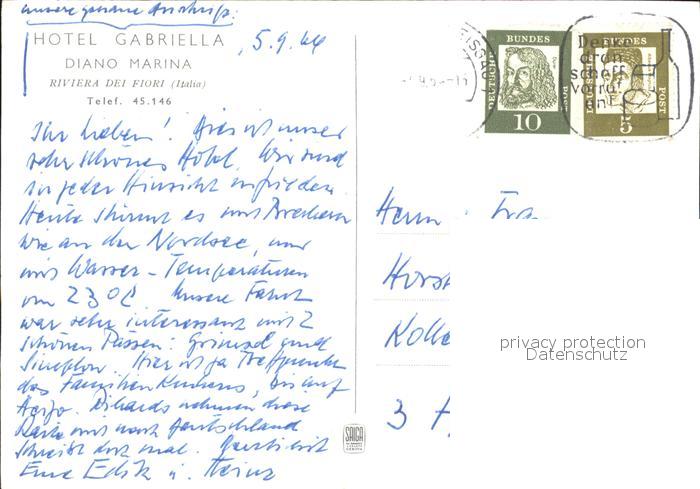 unsere genaue Anschrift:
HOTEL GABRIELLA
DIANO MARINA
RIVIERA DEI FIORI (Italia)
Telef. 45.146
, 5.9.64
Ihr Lieben! Dies ist unser
sehr schönes Hotel. Wir sind
in jeder Hinsicht zufrieden.
Heute stürmt es mit Brechern
wie an der Nordsee, nur
mit Wasser-Temperaturen
von 23°C. Unsere Fahrt
war sehr interessant mit 2
schönen Pässen: Grimsel und
Simplon. Hier ist ja Treffpunkt
des Familien
nehmen diese
Karte mit nach Deutschland
Schreibt doch mal.
Eure Edith u. Heinz
DEUTSCHE BUNDESPOST
10
BUNDES POST
5
Herrn
Horst
Kolle
3 H
privacy protection
Datenschutz
SAIGA